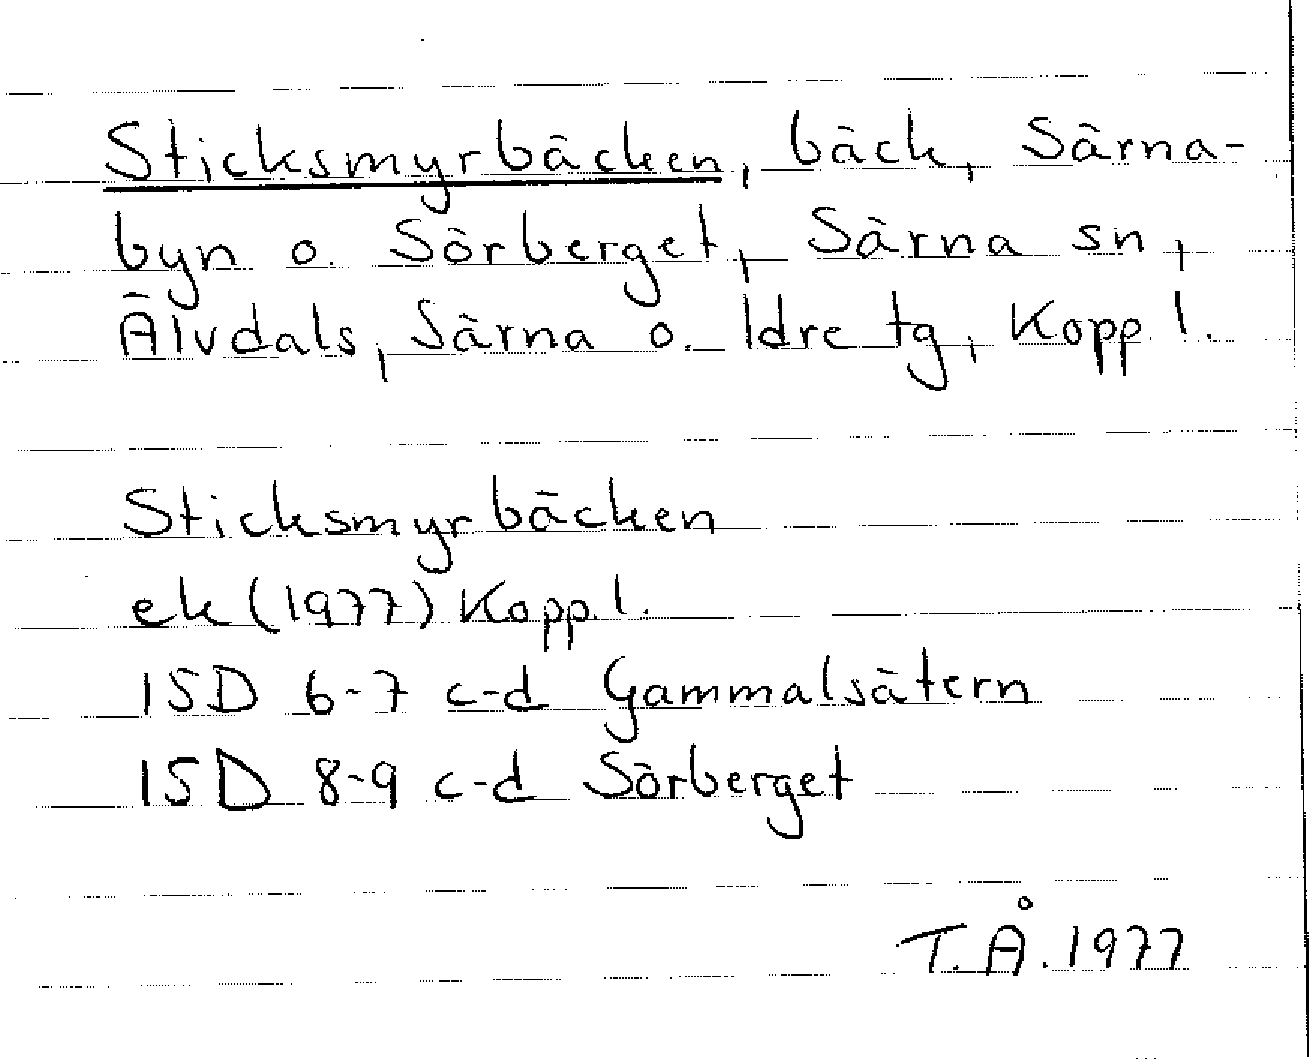 Sticksmyrbäcken, bäck, Särna-
byn o. Sörberget, Särna sn,
Älvdals, Särna o. Idre tg, Kopp. l.
Sticksmyrbäcken
ek (1977) Kopp. l.
15D 6-7 c-d Gammalsätern
15D 8-9 c-d Sörberget
T.Å. 1977